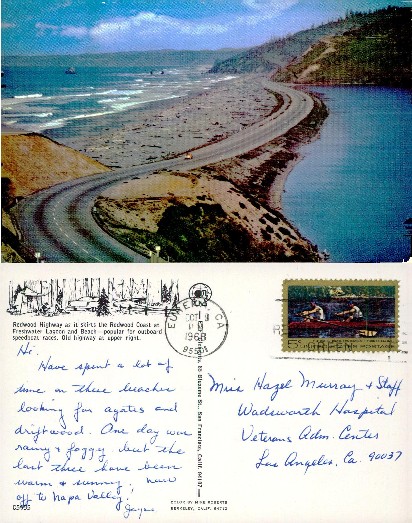 Redwood Highway as it skirts the Redwood Coast at
Freshwater Lagoon and Beach—popular for outboard
speedboat races. Old highway at upper right.
Hi.
Have spent a lot of
time on these beaches
looking for agates and
driftwood. One day was
rainy & foggy but the
last three have been
warm & sunny. Now
off to Napa Valley!
Jayne
EUREKA, CA
PM
1968
95501
5¢
POSTAGE
Miss Hazel Murray & Staff
Wadsworth Hospital
Veterans Adm. Center
Los Angeles, Ca. 90037
San Francisco, Calif. 94107
COLOR BY MIKE ROBERTS
BERKELEY, CALIF. 94710